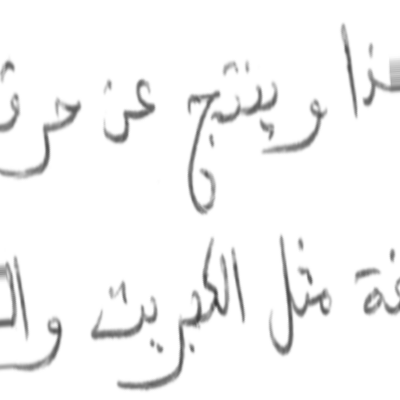 هذا وينتج عن حرق
مثل الكبريت وال